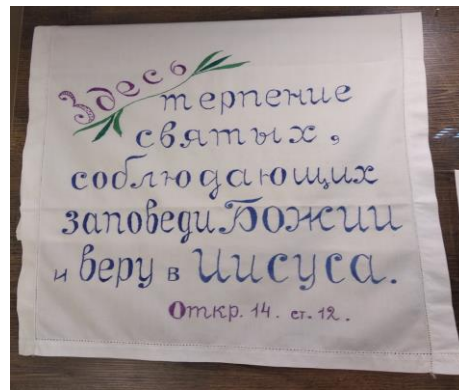 Здесь
терпение
святых,
соблюдающих
заповеди Божии
и веру в Иисуса.
Откр. 14. ст. 12.